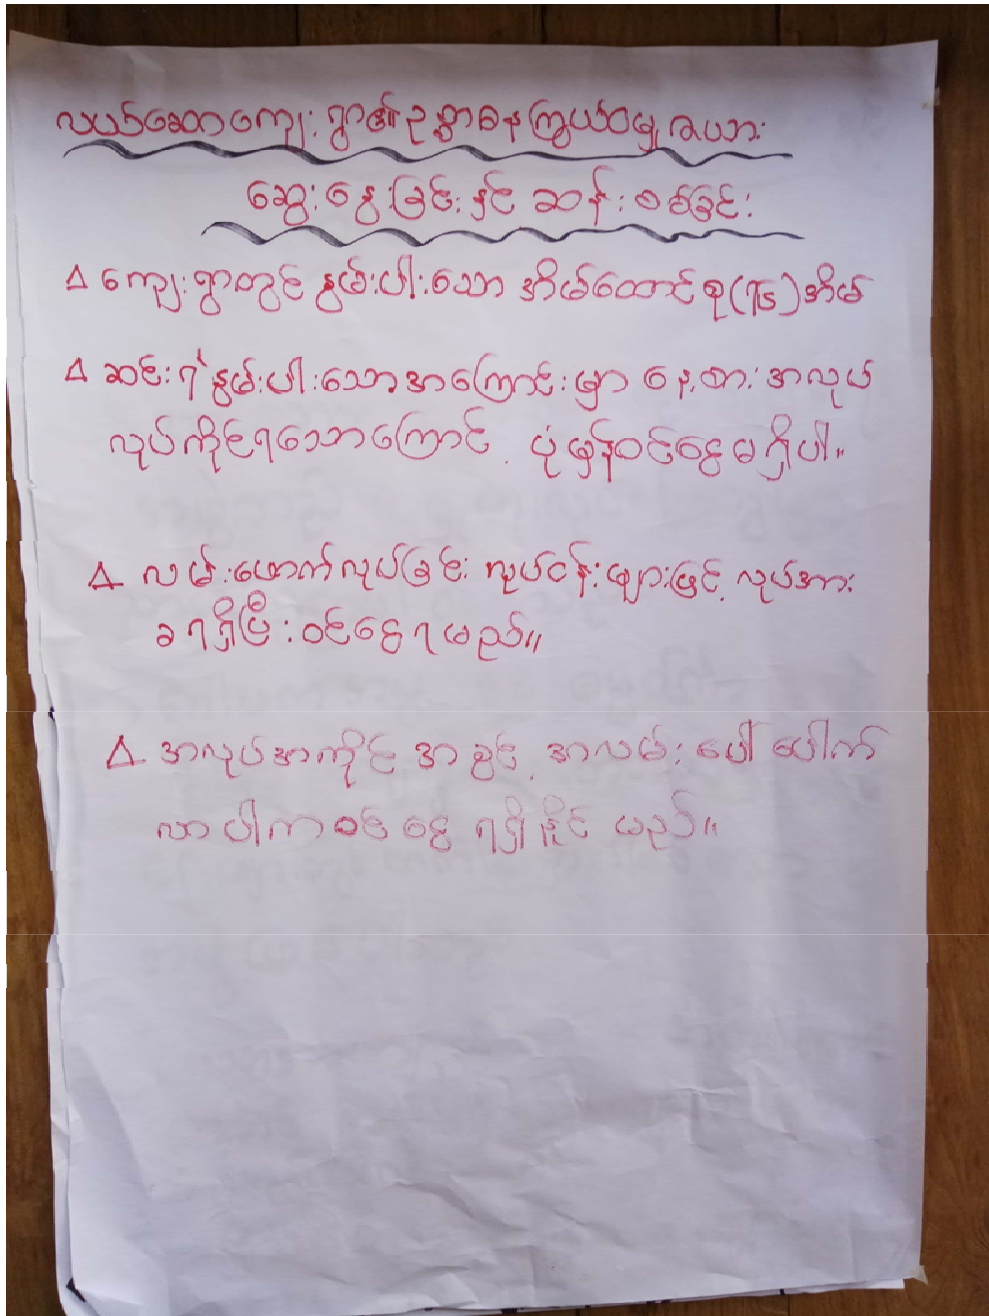 လယ်ဆောကျေးရွာ၏ ဥစ္စာဓနကြွယ်ဝမှုဇယား
ဆွေးနွေးခြင်းနှင့် ဆန်းစစ်ခြင်း
Δ ကျေးရွာတွင် နွမ်းပါးသော အိမ်ထောင်စု(၇၆)အိမ်
Δ ဆင်းရဲနွမ်းပါးသောအကြောင်းမှာ နေ့စားအလုပ်
လုပ်ကိုင်ရသောကြောင့် ပုံမှန်ဝင်ငွေမရှိပါ။
Δ လမ်းဖောက်လုပ်ခြင်း လုပ်ငန်းများဖြင့် လုပ်အား
ခရရှိပြီး ဝင်ငွေရမည်။
Δ အလုပ်အကိုင် အခွင့်အလမ်း ပေါ်ပေါက်
လာပါက ဝင်ငွေ ရရှိနိုင်မည်။